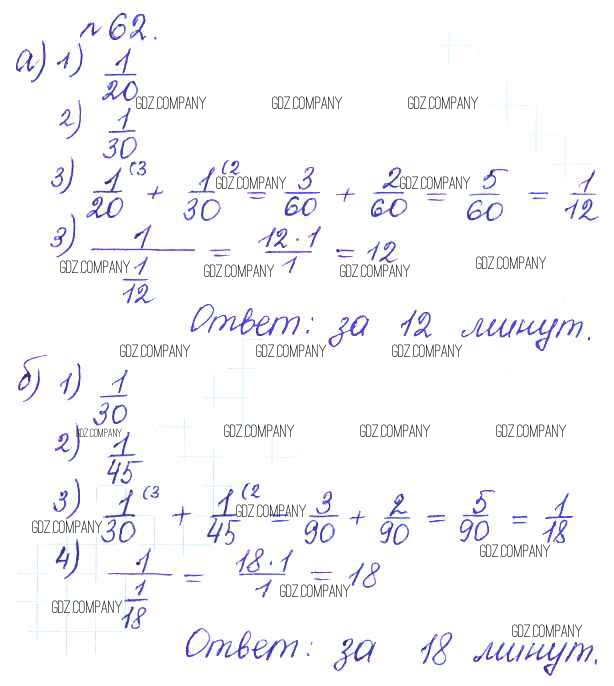 №62.
а) 1) 1/20
GDZ.COMPANY GDZ.COMPANY GDZ.COMPANY
2) 1/30
3) 1/20 (3 + 1/30 (2 = 3/60 + 2/60 = 5/60 = 1/12
GDZ.COMPANY GDZ.COMPANY
3) 1/(1/12) = 12·1/1 = 12
GDZ.COMPANY GDZ.COMPANY GDZ.COMPANY GDZ.COMPANY
Ответ: за 12 минут.
GDZ.COMPANY GDZ.COMPANY GDZ.COMPANY
б) 1) 1/30
GDZ.COMPANY GDZ.COMPANY GDZ.COMPANY GDZ.COMPANY
2) 1/45
3) 1/30 (3 + 1/45 (2 = 3/90 + 2/90 = 5/90 = 1/18
GDZ.COMPANY GDZ.COMPANY GDZ.COMPANY
4) 1/(1/18) = 18·1/1 = 18
GDZ.COMPANY GDZ.COMPANY
Ответ: за 18 минут.
GDZ.COMPANY